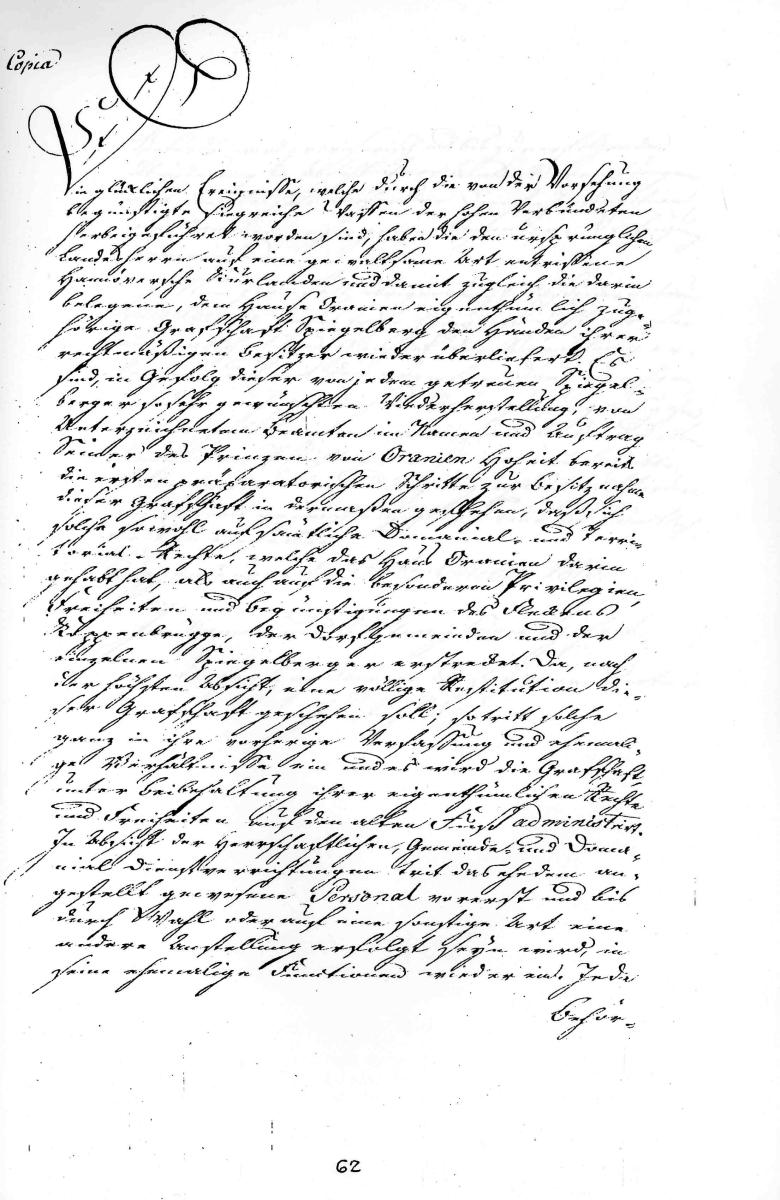 Copia
Die glücklichen Ereignisse, welche durch die von der Vorsehung
begünstigte siegreiche Waffen der hohen Verbündeten
herbeigeführet worden sind, haben die den ursprünglichen
Landesherrn auf eine gewaltsame Art entrissene
Hannöversche Churlanden und damit zugleich die darin
belegene, dem Hause Oranien eigenthümlich zuge=
hörige Grafschaft Spiegelberg den Händen ihrer
rechtmäßigen Besitzer wieder überliefert. Es
sind, in Gefolg dieser von jedem getreuen Spiegel=
berger so sehr gewünschten Wiederherstellung, von
Unterzeichnetem Beamten im Namen und Auftrag
Seiner des Prinzen von Oranien Hoheit bereits
die ersten präparatorischen Schritte zur Besitznahme
dieser Grafschaft in dermaßen geschehen, daß sich
solche sowohl auf sämtliche Domanial- und Terri=
torial-Rechte, welche das Haus Oranien darin
gehabt hat, als auch auf die besonderen Privilegien,
Freiheiten und begünstigungen des Fleckens
Koppenbrügge, der Dorfgemeinden und der
einzelnen Spiegelberger erstrecket. Da, nach
der höchsten Absicht, eine völlige Restitution die=
ser Grafschaft geschehen soll; so tritt solche
ganz in ihre vorherige Verfassung und ehemali=
ge Verhältnisse ein und es wird die Grafschaft,
unter Beibehaltung ihrer eigenthümlichen Rechte
und Freiheiten auf den alten Fuß administrirt.
In Absicht der Herrschaftlichen, Gemeinde- und Doma=
nial Dienstverrichtungen trit das ehedem an=
gestellt gewesene Personal vorerst und bis
durch Wahl oder auf eine sonstige Art eine
andere Anstellung erfolgt seyn wird, in
seine ehemalige Functionen wieder ein. Jede
Behör=
62